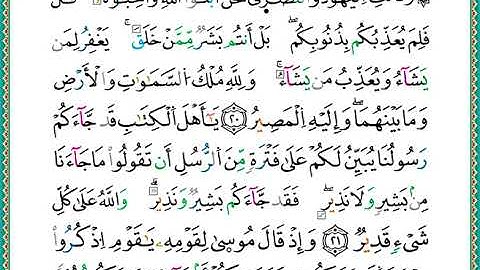 فَلِمَ يُعَذِّبُكُم بِذُنُوبِكُم ۖ بَلْ أَنتُم بَشَرٌ مِّمَّنْ خَلَقَ ۚ يَغْفِرُ لِمَن
يَشَآءُ وَيُعَذِّبُ مَن يَشَآءُ ۚ وَلِلَّهِ مُلْكُ السَّمَٰوَٰتِ وَالْأَرْضِ
وَمَا بَيْنَهُمَا ۖ وَإِلَيْهِ الْمَصِيرُ ٢٠ يَٰٓأَهْلَ الْكِتَٰبِ قَدْ جَآءَكُمْ
رَسُولُنَا يُبَيِّنُ لَكُمْ عَلَىٰ فَتْرَةٍ مِّنَ الرُّسُلِ أَن تَقُولُوا مَا جَآءَنَا
مِنۢ بَشِيرٍ وَلَا نَذِيرٍ ۖ فَقَدْ جَآءَكُم بَشِيرٌ وَنَذِيرٌ ۗ وَاللَّهُ عَلَىٰ كُلِّ
شَيْءٍ قَدِيرٌ ٢١ وَإِذْ قَالَ مُوسَىٰ لِقَوْمِهِ يَٰقَوْمِ اذْكُرُوا